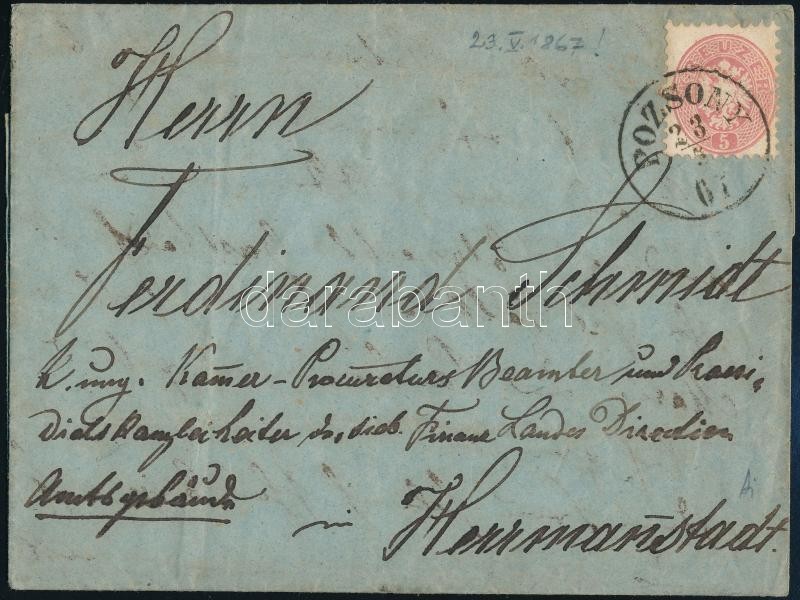 23. V. 1867!
KREUZER
5
POZSONY
23/5
67
Herrn
Ferdinand Schmidt
k. ung. Kamer-Procuraturs Beamter und Praesi-
dialskanzlei leiter d. sieb. Finanz Landes Direction
Amtsgebäude
in Herrmanstadt.
darabanth